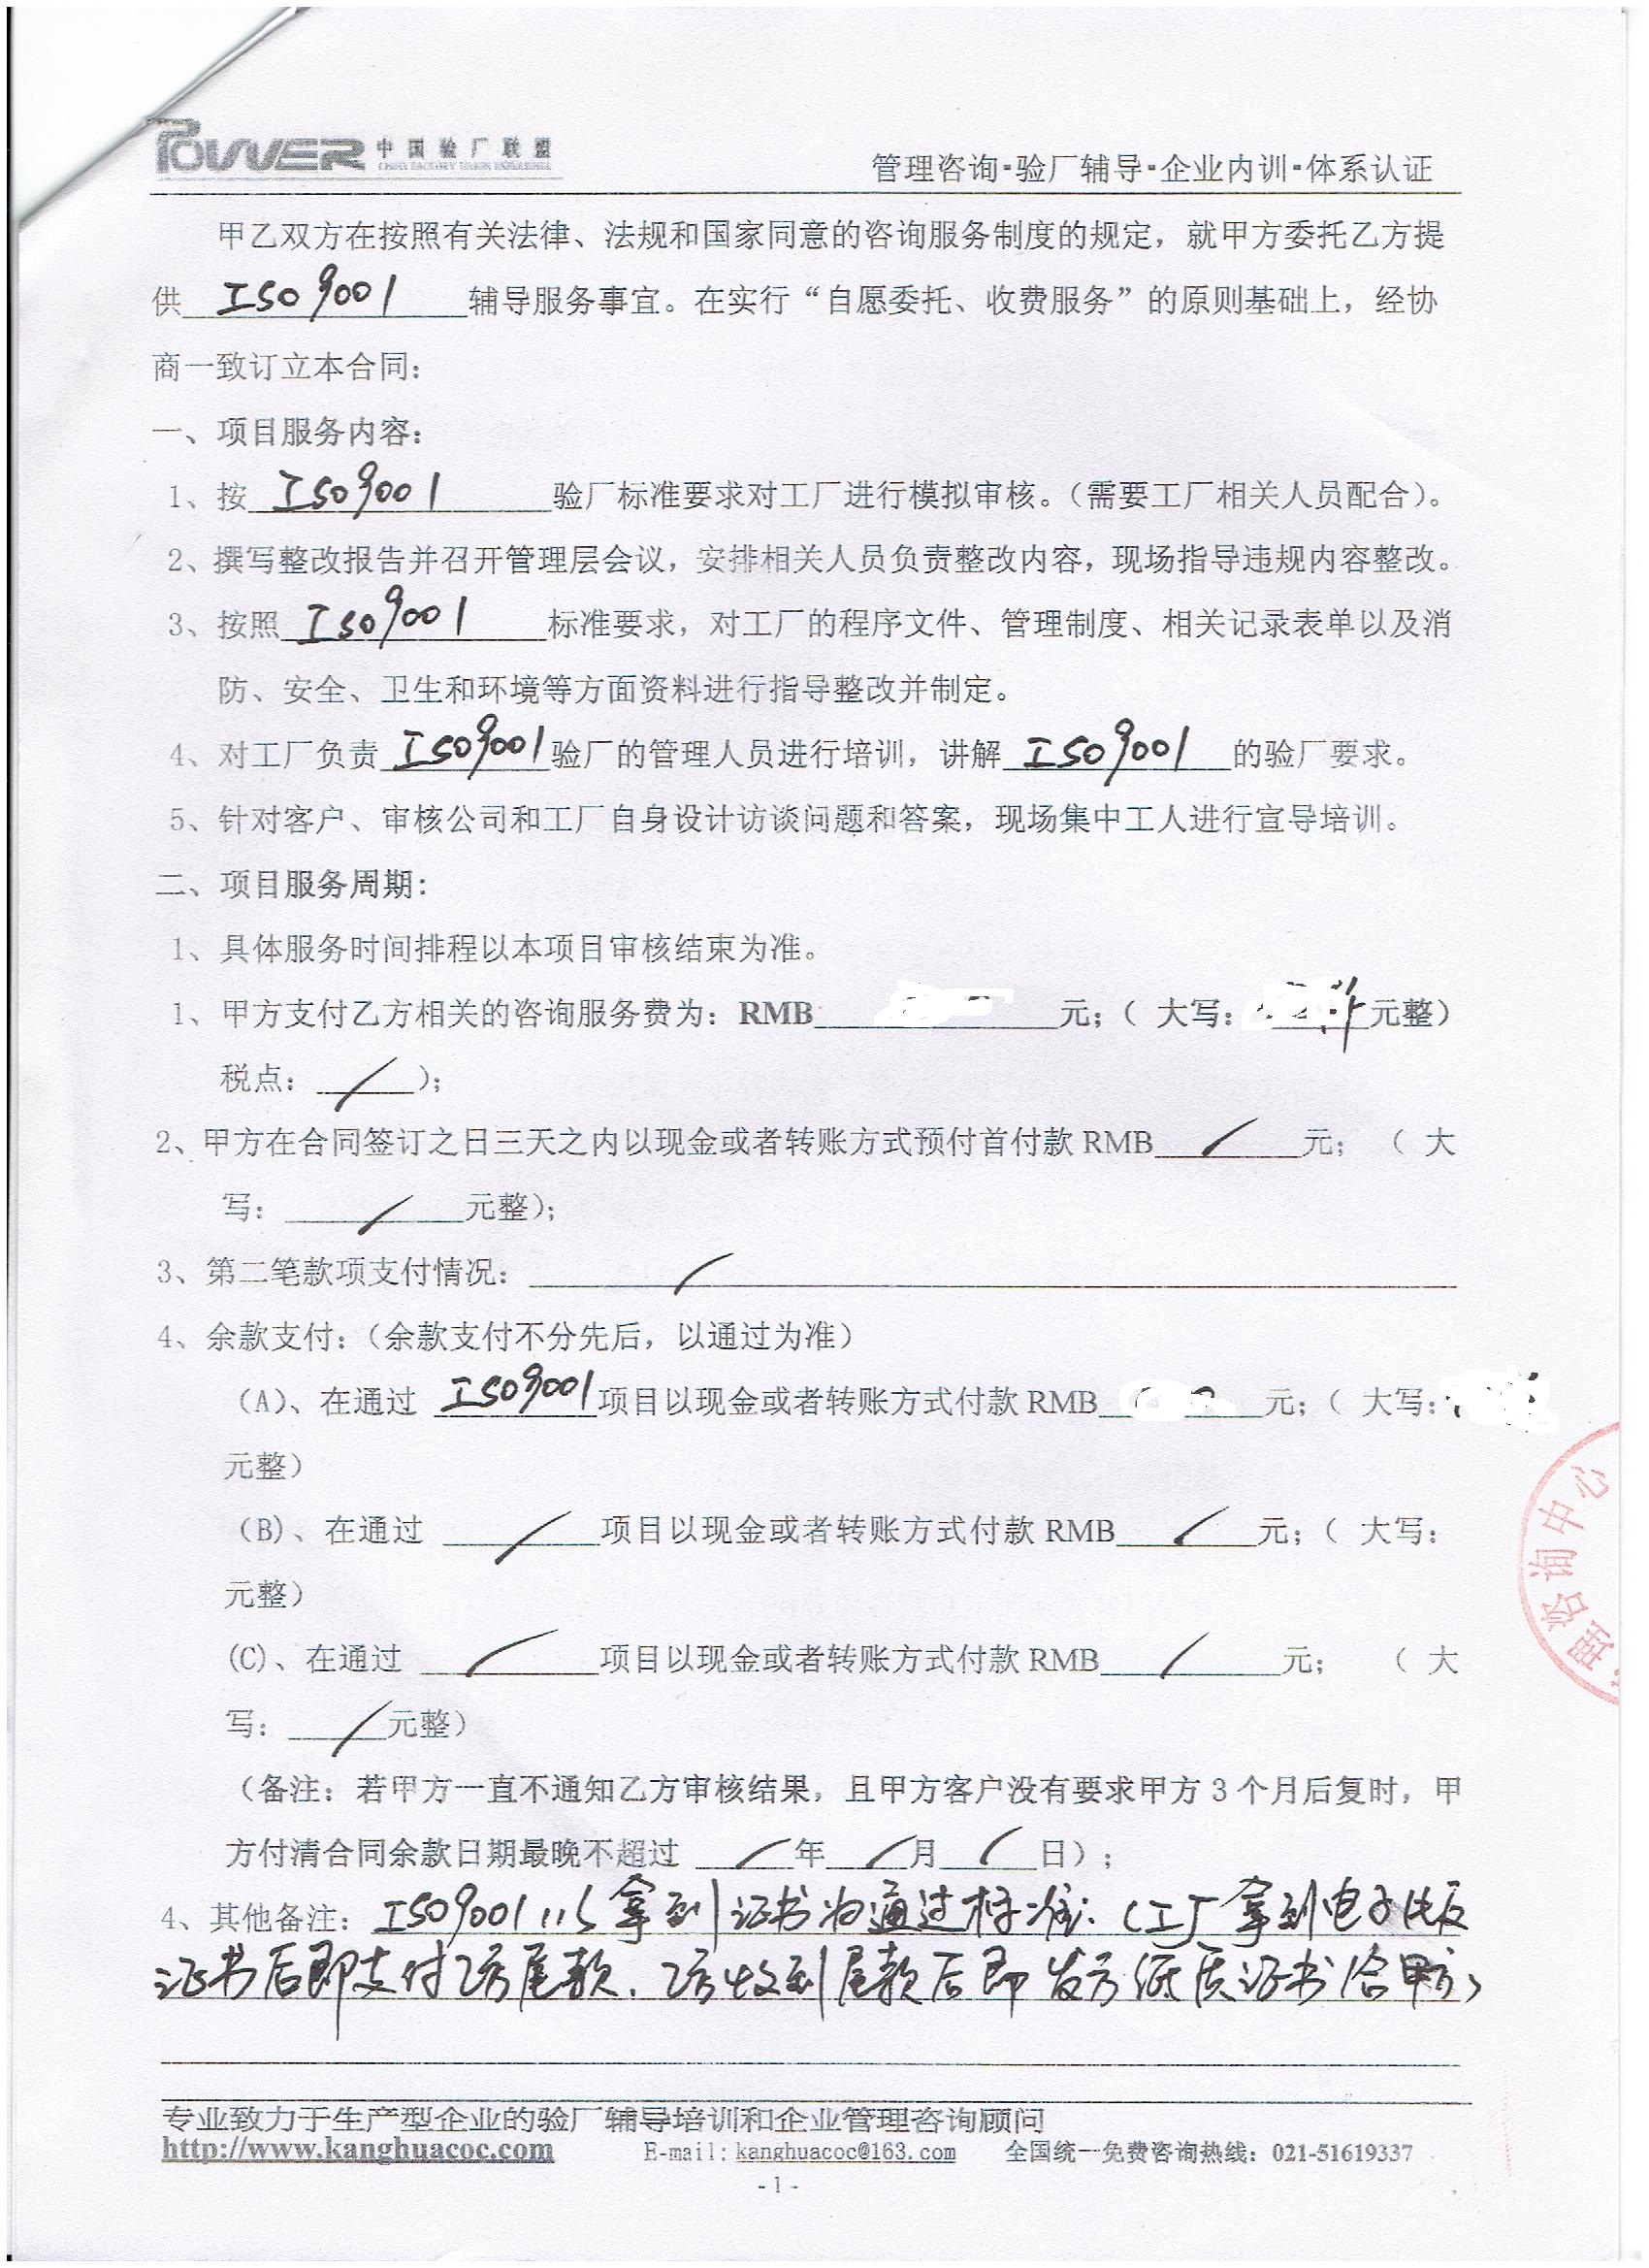 POWER 中国验厂联盟
管理咨询·验厂辅导·企业内训·体系认证
甲乙双方在按照有关法律、法规和国家同意的咨询服务制度的规定，就甲方委托乙方提
供 ISO9001 辅导服务事宜。在实行“自愿委托、收费服务”的原则基础上，经协
商一致订立本合同：
一、项目服务内容：
1、按 ISO9001 验厂标准要求对工厂进行模拟审核。（需要工厂相关人员配合）。
2、撰写整改报告并召开管理层会议，安排相关人员负责整改内容，现场指导违规内容整改。
3、按照 ISO9001 标准要求，对工厂的程序文件、管理制度、相关记录表单以及消
防、安全、卫生和环境等方面资料进行指导整改并制定。
4、对工厂负责 ISO9001 验厂的管理人员进行培训，讲解 ISO9001 的验厂要求。
5、针对客户、审核公司和工厂自身设计访谈问题和答案，现场集中工人进行宣导培训。
二、项目服务周期：
1、具体服务时间排程以本项目审核结束为准。
1、甲方支付乙方相关的咨询服务费为：RMB 元；（ 大写： 元整）
税点： / ）；
2、甲方在合同签订之日三天之内以现金或者转账方式预付首付款 RMB / 元； （ 大
写： / 元整）；
3、第二笔款项支付情况： /
4、余款支付：（余款支付不分先后，以通过为准）
（A）、在通过 ISO9001 项目以现金或者转账方式付款 RMB 元；（ 大写：
元整）
（B）、在通过 / 项目以现金或者转账方式付款 RMB / 元；（ 大写：
元整）
(C)、在通过 / 项目以现金或者转账方式付款 RMB / 元； （ 大
写： / 元整）
（备注：若甲方一直不通知乙方审核结果，且甲方客户没有要求甲方 3 个月后复时，甲
方付清合同余款日期最晚不超过 / 年 / 月 / 日）；
4、其他备注：ISO9001以拿到证书为通过标准：（工厂拿到电子版
证书后即支付乙方尾款、乙方收到尾款后即发放纸质证书给甲方）
理咨询中心
专业致力于生产型企业的验厂辅导培训和企业管理咨询顾问
http://www.kanghuacoc.com E-mail: kanghuacoc@163.com 全国统一免费咨询热线：021-51619337
- 1 -